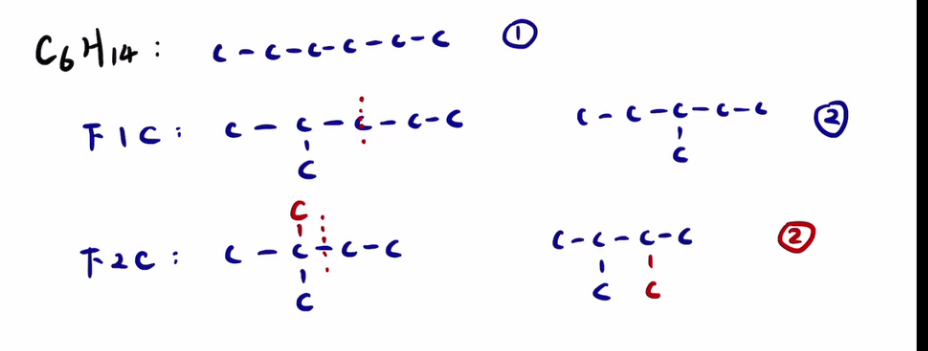 C6H14: C-C-C-C-C-C ①
下1C: C-C-C-C-C C-C-C-C-C ②
C C
C
下2C: C-C-C-C C-C-C-C ②
C C C